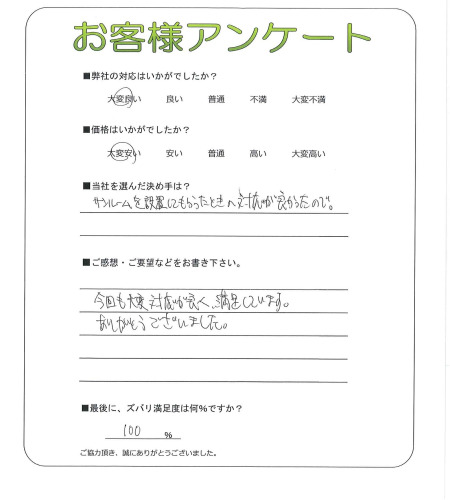 お客様アンケート
■弊社の対応はいかがでしたか？
大変良い　良い　普通　不満　大変不満
■価格はいかがでしたか？
大変安い　安い　普通　高い　大変高い
■当社を選んだ決め手は？
サンルームを設置してもらったときの対応が良かったので。
■ご感想・ご要望などをお書き下さい。
今回も大変対応が良く、満足しています。
ありがとうございました。
■最後に、ズバリ満足度は何％ですか？
100 ％
ご協力頂き、誠にありがとうございました。